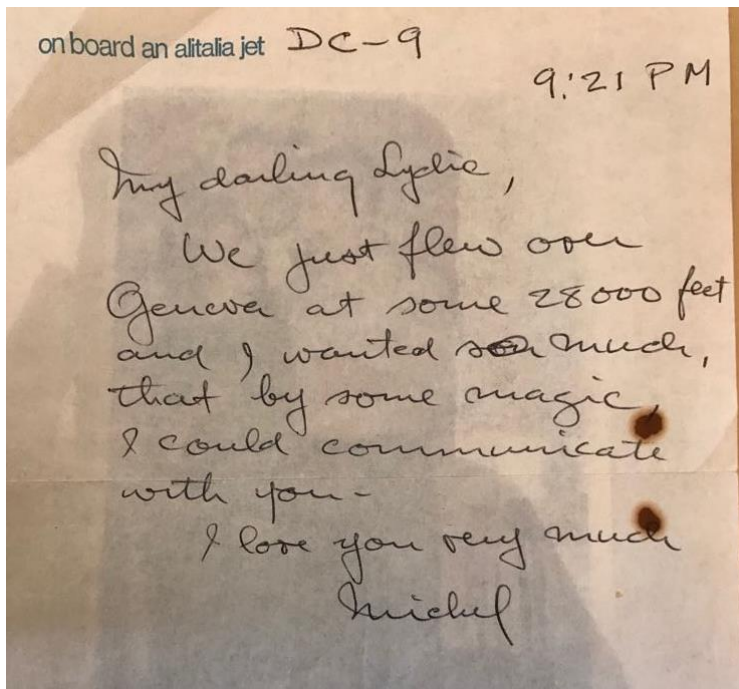 on board an alitalia jet DC-9
9:21 PM
My darling Lydie,
We just flew over
Geneva at some 28000 feet
and I wanted so much,
that by some magic,
I could communicate
with you-
I love you very much
Michel